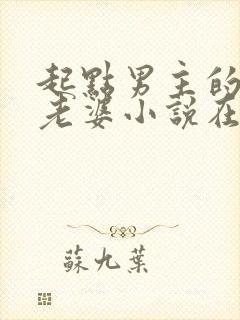 起點男主的
老婆小說在
蘇九葉